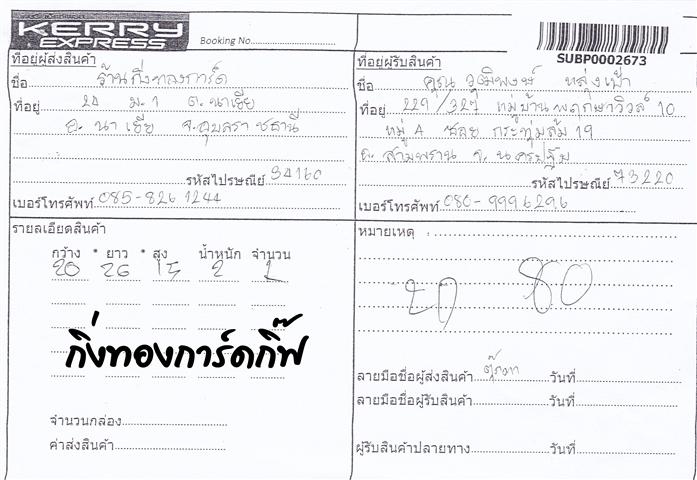 KERRY
EXPRESS
Booking No.
SUBP0002673
ที่อยู่ผู้ส่งสินค้า
ชื่อ ร้านกิ่งทองการ์ด
ที่อยู่ 20 ม.1 ต.นาเยีย
อ.นาเยีย จ.อุบลราชธานี
รหัสไปรษณีย์ 34160
เบอร์โทรศัพท์ 085-826 1244
ที่อยู่ผู้รับสินค้า
ชื่อ คุณ วุฒิพงษ์
ที่อยู่ 229/327 หมู่บ้านพฤกษาวิวล์ 10
หมู่ A ซอย กระทุ่มล้ม 19
อ.สามพราน จ.นครปฐม
รหัสไปรษณีย์ 73220
เบอร์โทรศัพท์ 080-9996296
รายลเอียดสินค้า
กว้าง * ยาว * สูง น้ำหนัก จำนวน
20 26 15 2 1
กิ่งทองการ์ดกิ๊ฟ
จำนวนกล่อง
ค่าส่งสินค้า
หมายเหตุ :
80
ลายมือชื่อผู้ส่งสินค้า วันที่
ลายมือชื่อผู้รับสินค้า วันที่
ผู้รับสินค้าปลายทาง วันที่